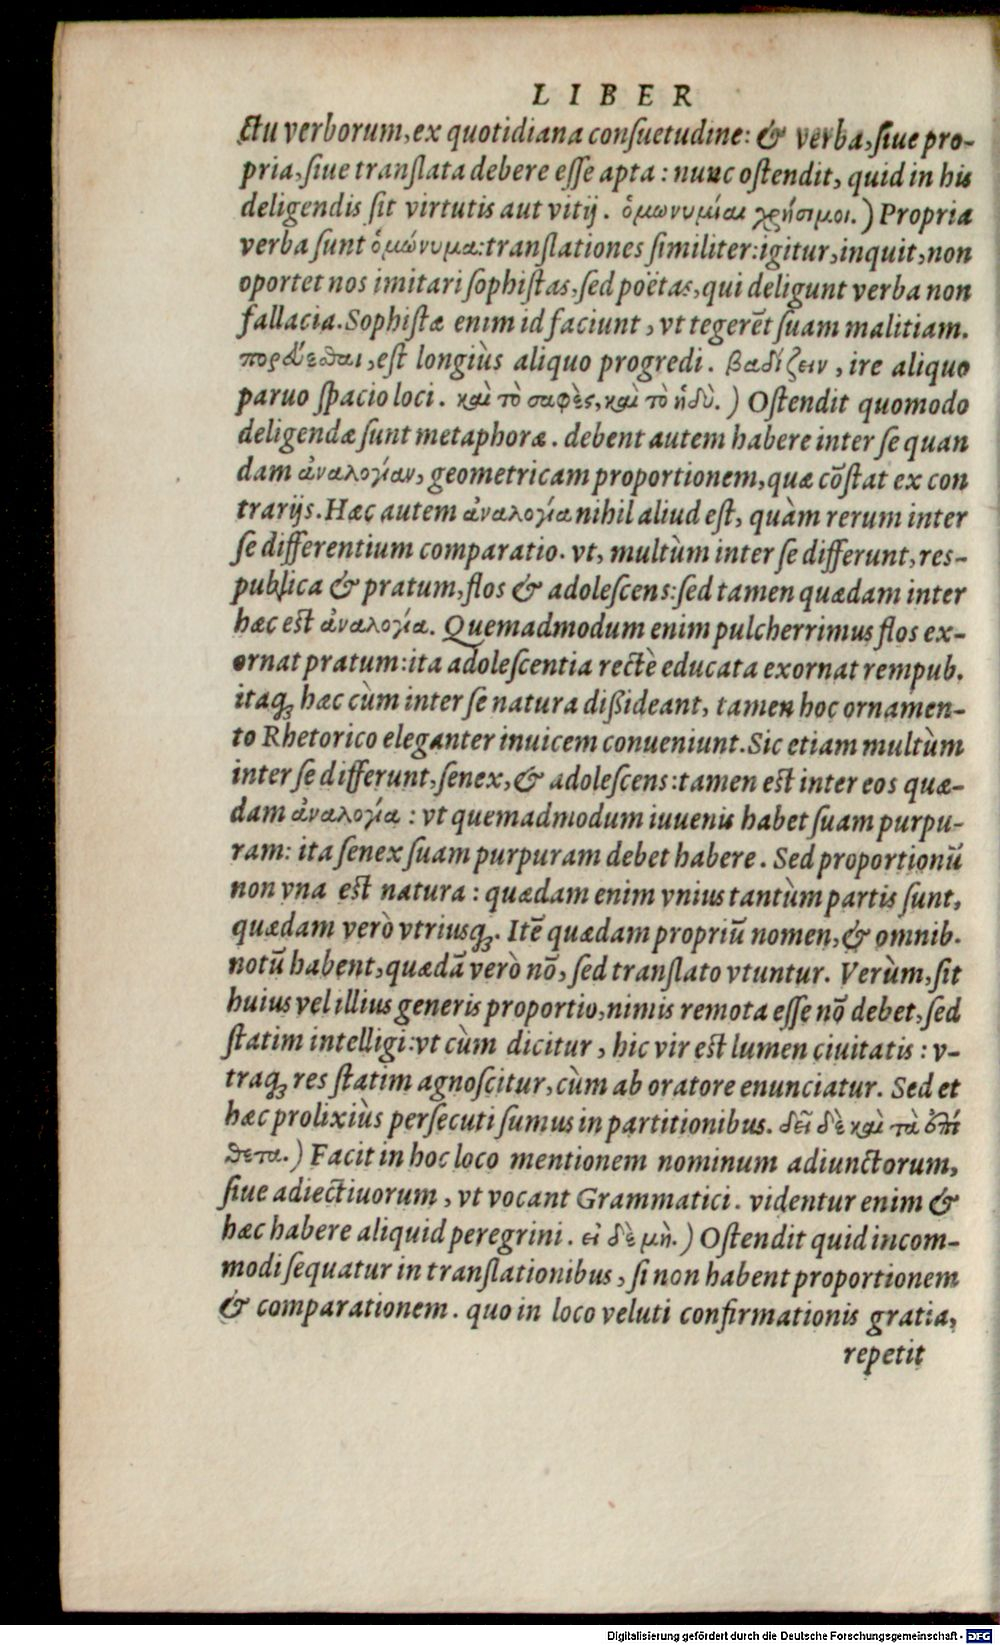 LIBER
ctu verborum, ex quotidiana consuetudine: & verba, siue pro-
pria, siue translata debere esse apta: nunc ostendit, quid in his
deligendis sit virtutis aut vitij. ὁμωνυμίαι χρήσιμοι.) Propria
verba sunt ὁμώνυμα: translationes similiter: igitur, inquit, non
oportet nos imitari sophistas, sed poëtas, qui deligunt verba non
fallacia. Sophistæ enim id faciunt, vt tegerēt suam malitiam.
πορεύεσθαι, est longiùs aliquo progredi. βαδίζειν, ire aliquo
paruo spacio loci. καὶ τὸ σαφὲς, καὶ τὸ ἡδὺ.) Ostendit quomodo
deligendæ sunt metaphoræ. debent autem habere inter se quan
dam ἀναλογίαν, geometricam proportionem, quæ cōstat ex con
trarijs. Hæc autem ἀναλογία nihil aliud est, quàm rerum inter
se differentium comparatio. vt, multùm inter se differunt, res-
publica & pratum, flos & adolescens: sed tamen quædam inter
hæc est ἀναλογία. Quemadmodum enim pulcherrimus flos ex-
ornat pratum: ita adolescentia rectè educata exornat rempub.
itaq; hæc cùm inter se natura dißideant, tamen hoc ornamen-
to Rhetorico eleganter inuicem conueniunt. Sic etiam multùm
inter se differunt, senex, & adolescens: tamen est inter eos quæ-
dam ἀναλογία: vt quemadmodum iuuenis habet suam purpu-
ram: ita senex suam purpuram debet habere. Sed proportionū
non vna est natura: quædam enim vnius tantùm partis sunt,
quædam verò vtriusq;. Itē quædam propriū nomen, & omnib.
notū habent, quædā verò nō, sed translato vtuntur. Verùm, sit
huius vel illius generis proportio, nimis remota esse nō debet, sed
statim intelligi: vt cùm dicitur, hic vir est lumen ciuitatis: v-
traq; res statim agnoscitur, cùm ab oratore enunciatur. Sed et
hæc prolixiùs persecuti sumus in partitionibus. δεῖ δὲ καὶ τὰ ἐπί
θετα.) Facit in hoc loco mentionem nominum adiunctorum,
siue adiectiuorum, vt vocant Grammatici. videntur enim &
hæc habere aliquid peregrini. εἰ δὲ μὴ.) Ostendit quid incom-
modi sequatur in translationibus, si non habent proportionem
& comparationem. quo in loco veluti confirmationis gratia,
repetit
Digitalisierung gefördert durch die Deutsche Forschungsgemeinschaft - DFG